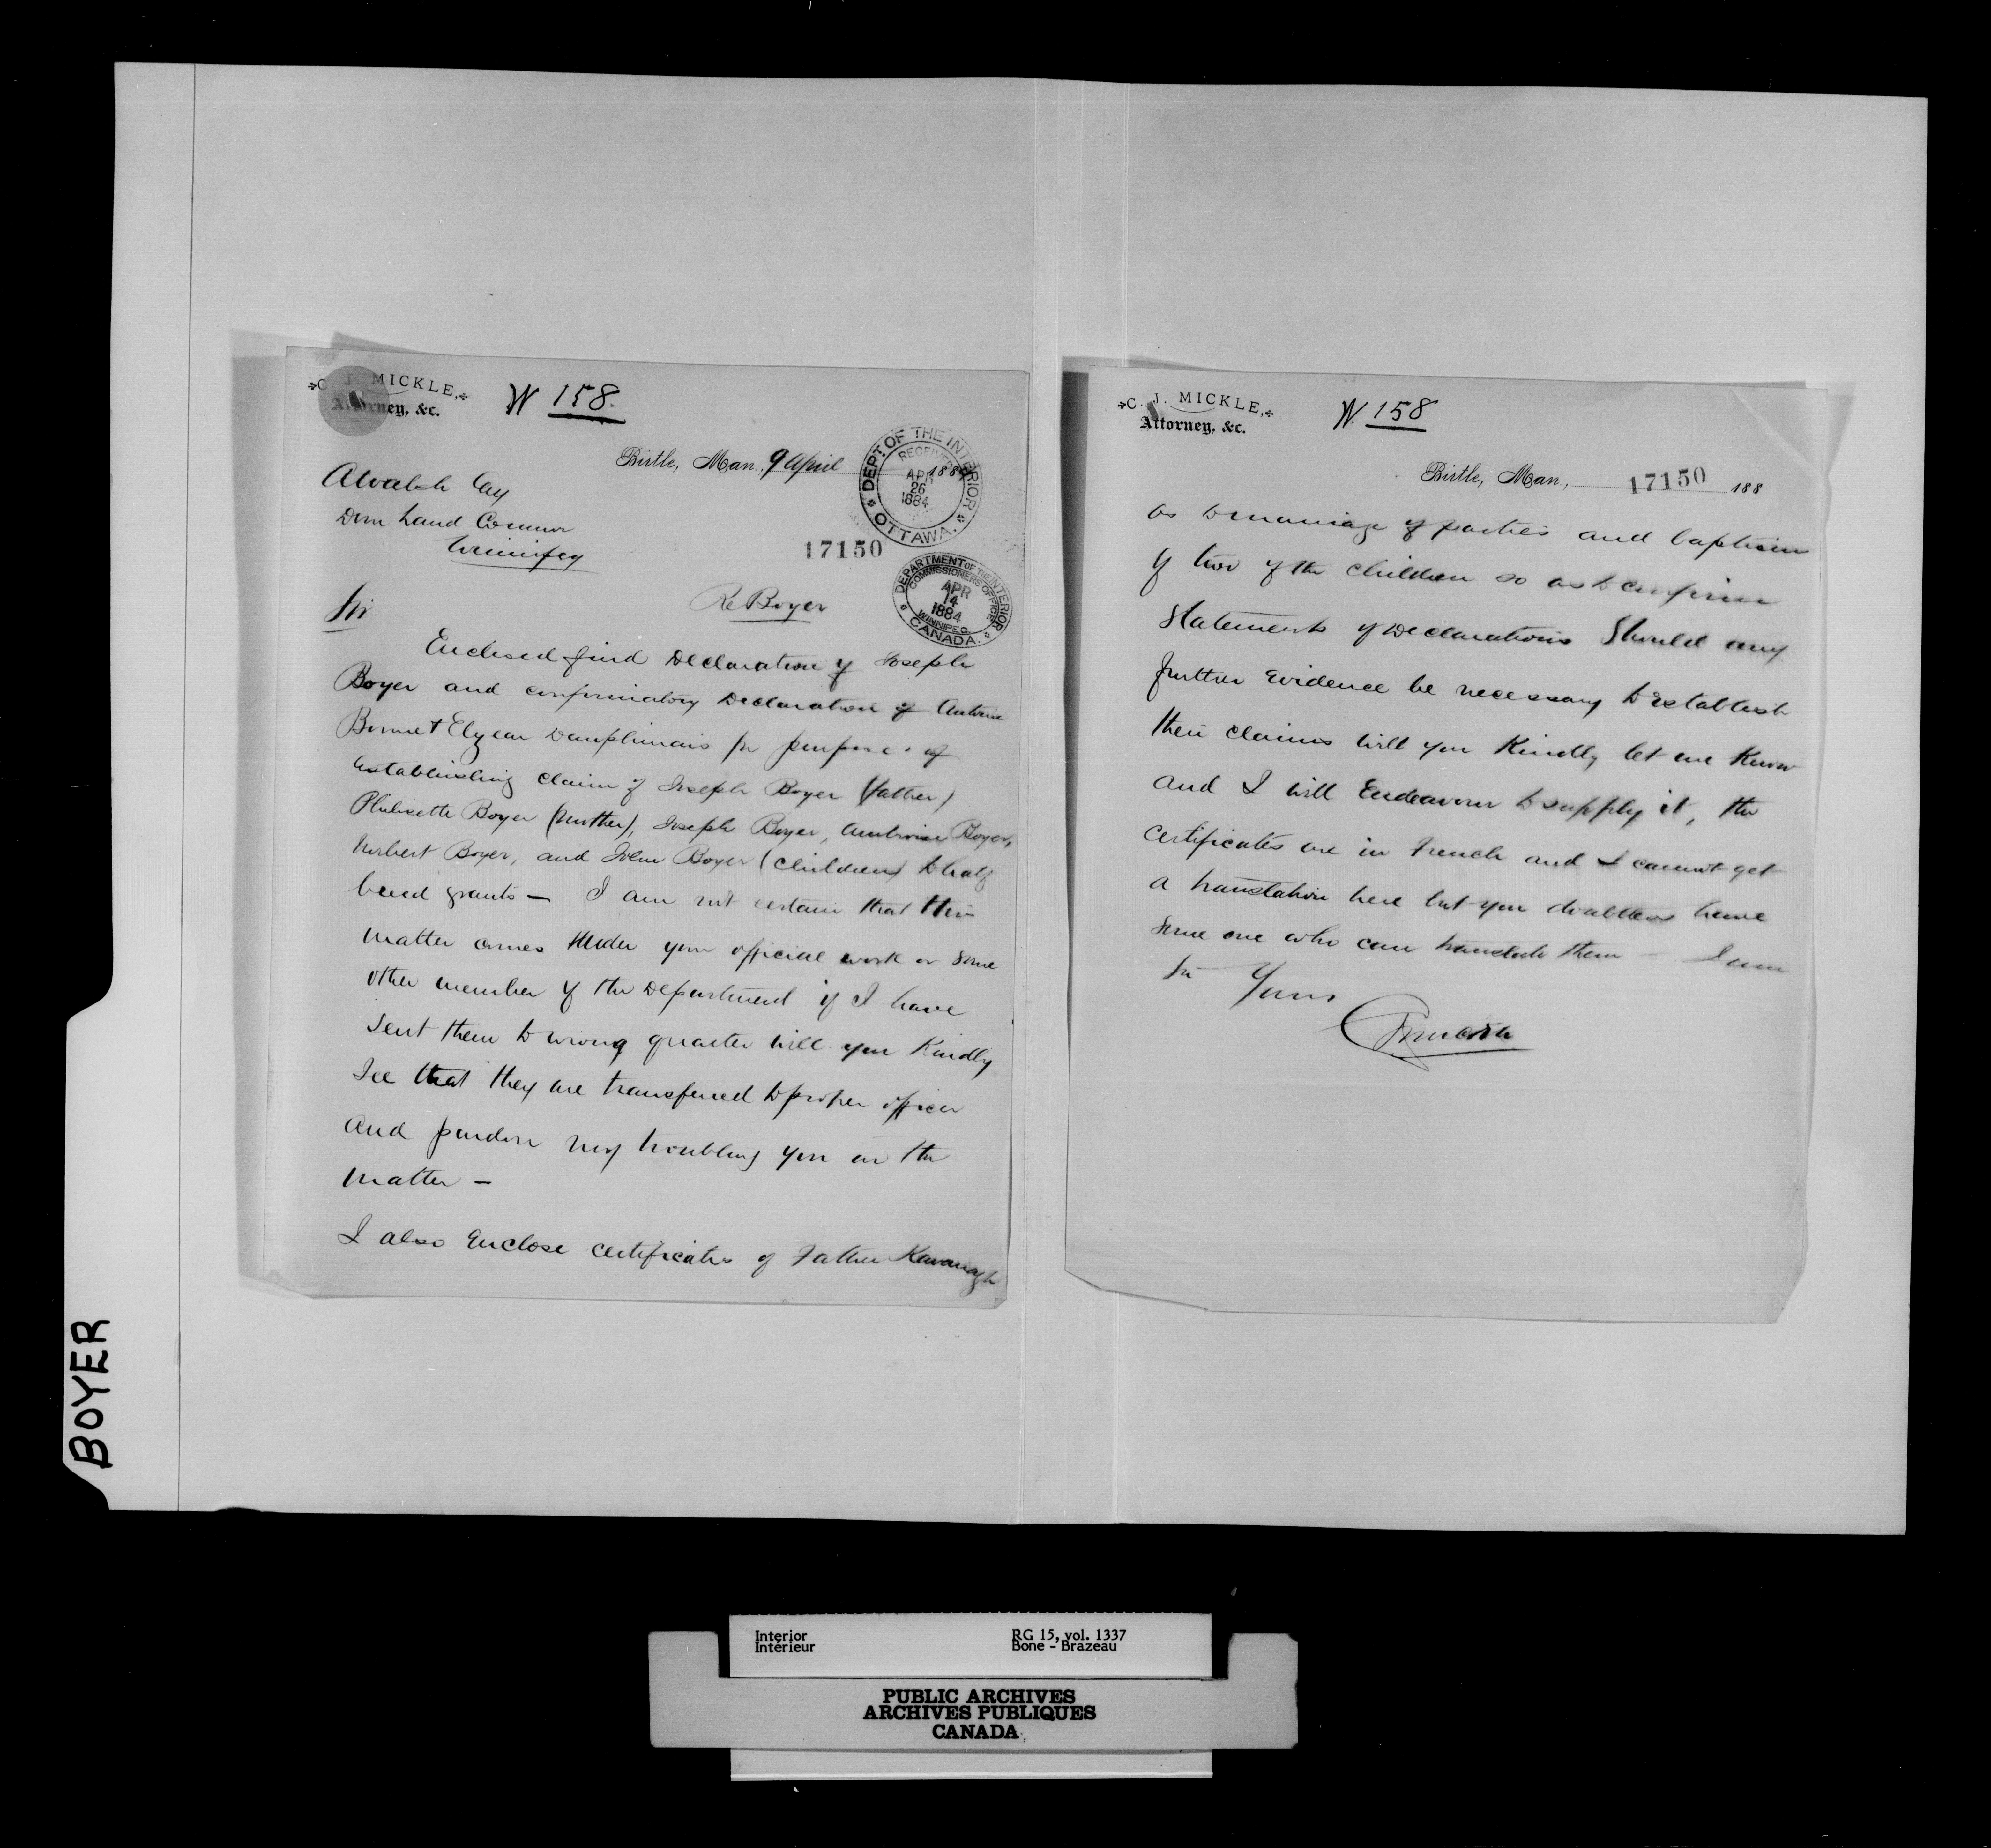 C. J. MICKLE,
Attorney, &c.
W 158.
Birtle, Man., 9 April 1884
DEPT. OF THE INTERIOR
RECEIVED
APR
26
1884
OTTAWA.
A Walsh Esq
Dom Land Commr
Winnipeg
17150
DEPARTMENT OF THE INTERIOR
COMMISSIONERS OFFICE
APR
14
1884
WINNIPEG
CANADA.
Re Boyer
Sir
Enclosed find Declaration of Joseph
Boyer and confirmatory Declaration of Antoine
& Elzear Dauphinais for purpose of
establishing claim of Joseph Boyer (father)
Philisette Boyer (mother), Joseph Boyer, Ambroise Boyer,
Norbert Boyer, and John Boyer (children) to half
breed grants — I am not certain that this
matter comes under your official work or some
other member of the Department if I have
sent them to wrong quarter will you kindly
see that they are transferred to proper officer
and pardon my troubling you in the
matter —
I also enclose certificates of Father Kavanagh
C. J. MICKLE,
Attorney, &c.
W. 158
Birtle, Man., 17150 188
as to marriage of parties and baptism
of two of the children so as to confirm
statements of Declarations Should any
further evidence be necessary to establish
their claims will you kindly let me know
and I will endeavour to supply it, the
certificates are in French and I cannot get
a translation here but you doubtless have
some one who can translate them — I am
Sir Yours
BOYER
Interior
Intérieur
RG 15, vol. 1337
Bone - Brazeau
PUBLIC ARCHIVES
ARCHIVES PUBLIQUES
CANADA